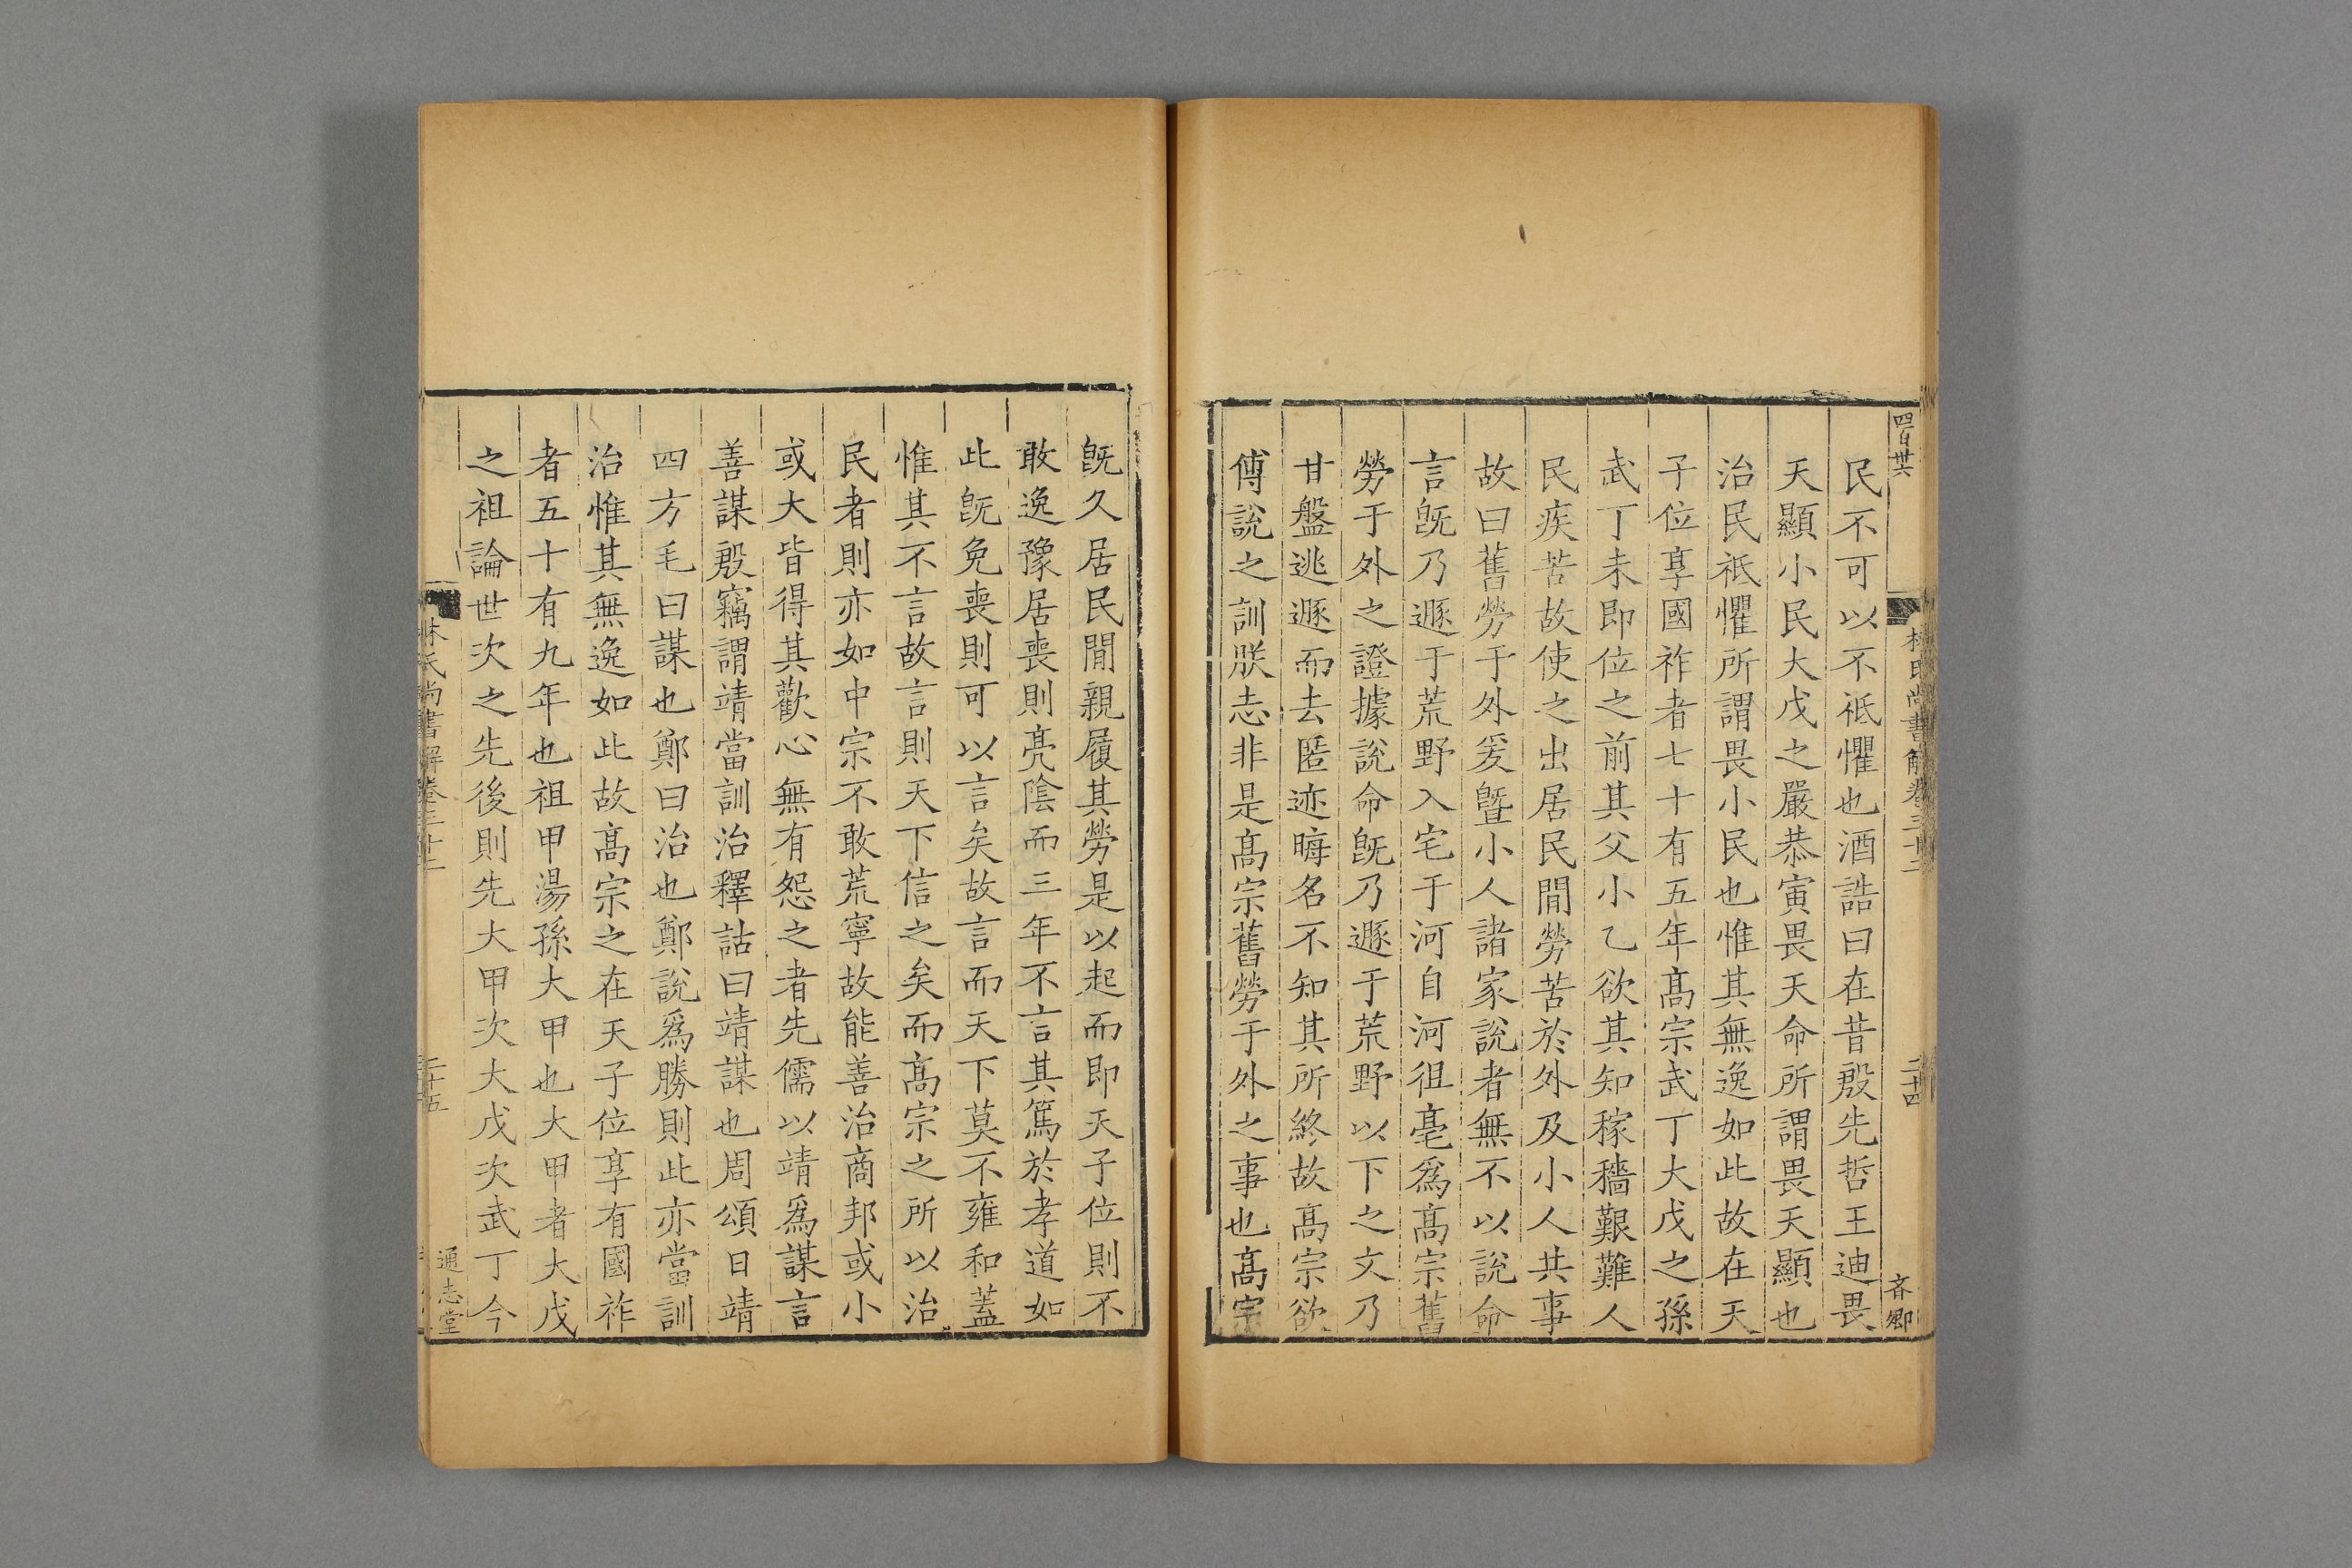 四百廿六
林氏尚書解卷三十二
二十四
斉卿
民不可以不祗懼也酒誥曰在昔殷先哲王迪畏
天顯小民大戊之嚴恭寅畏天命所謂畏天顯也
治民祗懼所謂畏小民也惟其無逸如此故在天
子位享國祚者七十有五年髙宗武丁大戊之孫
武丁未即位之前其父小乙欲其知稼穡艱難人
民疾苦故使之出居民間勞苦於外及小人共事
故曰舊勞于外爰曁小人諸家說者無不以說命
言旣乃遯于荒野入宅于河自河徂亳爲髙宗舊
勞于外之證據說命旣乃遯于荒野以下之文乃
甘盤逃遯而去匿迹晦名不知其所終故髙宗欲
傅說之訓朕志非是髙宗舊勞于外之事也髙宗
旣久居民間親履其勞是以起而即天子位則不
敢逸豫居喪則亮陰而三年不言其篤於孝道如
此旣免喪則可以言矣故言而天下莫不雍和蓋
惟其不言故言則天下信之矣而髙宗之所以治
民者則亦如中宗不敢荒寧故能善治商邦或小
或大皆得其歡心無有怨之者先儒以靖爲謀言
善謀殷竊謂靖當訓治釋詁曰靖謀也周頌曰靖
四方毛曰謀也鄭曰治也鄭說爲勝則此亦當訓
治惟其無逸如此故髙宗之在天子位享有國祚
者五十有九年也祖甲湯孫大甲也大甲者大戊
之祖論世次之先後則先大甲次大戊次武丁今
林氏尚書解卷三十二
二十五
通志堂